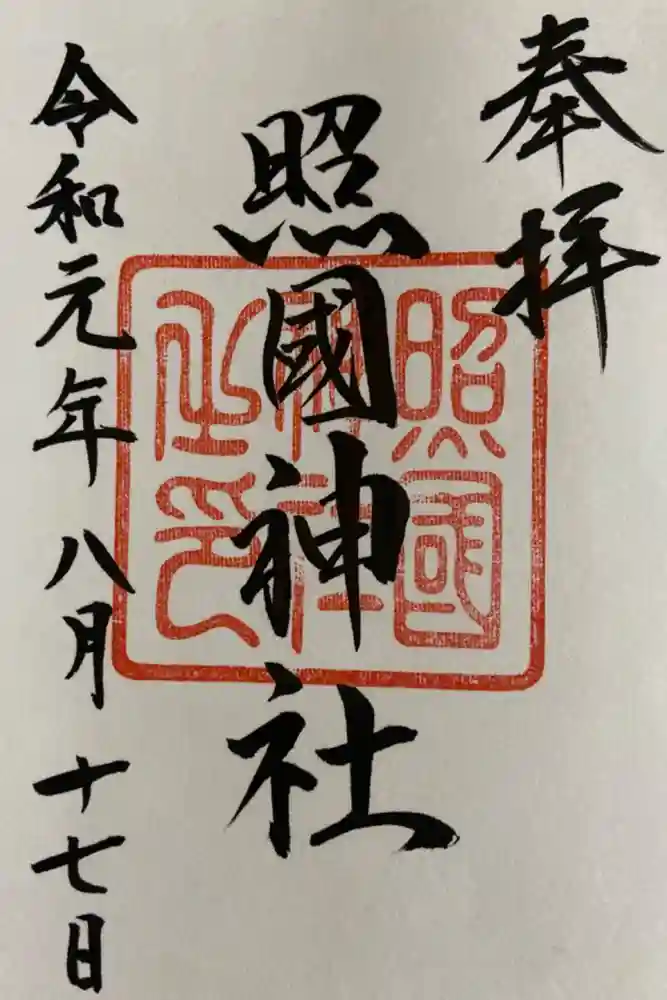 奉拝
照國神社
照国神社之印
令和元年八月十七日